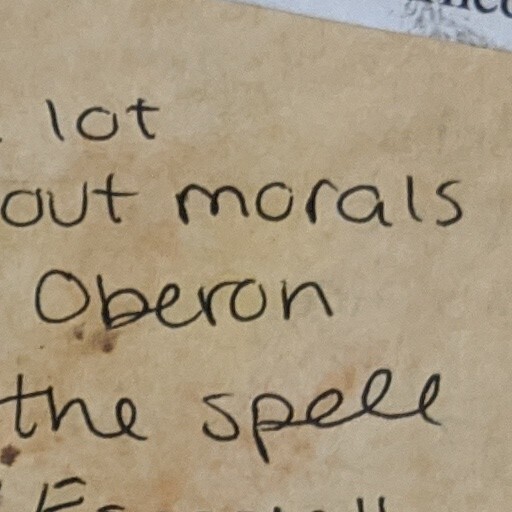 lot
out morals
Oberon
the spell